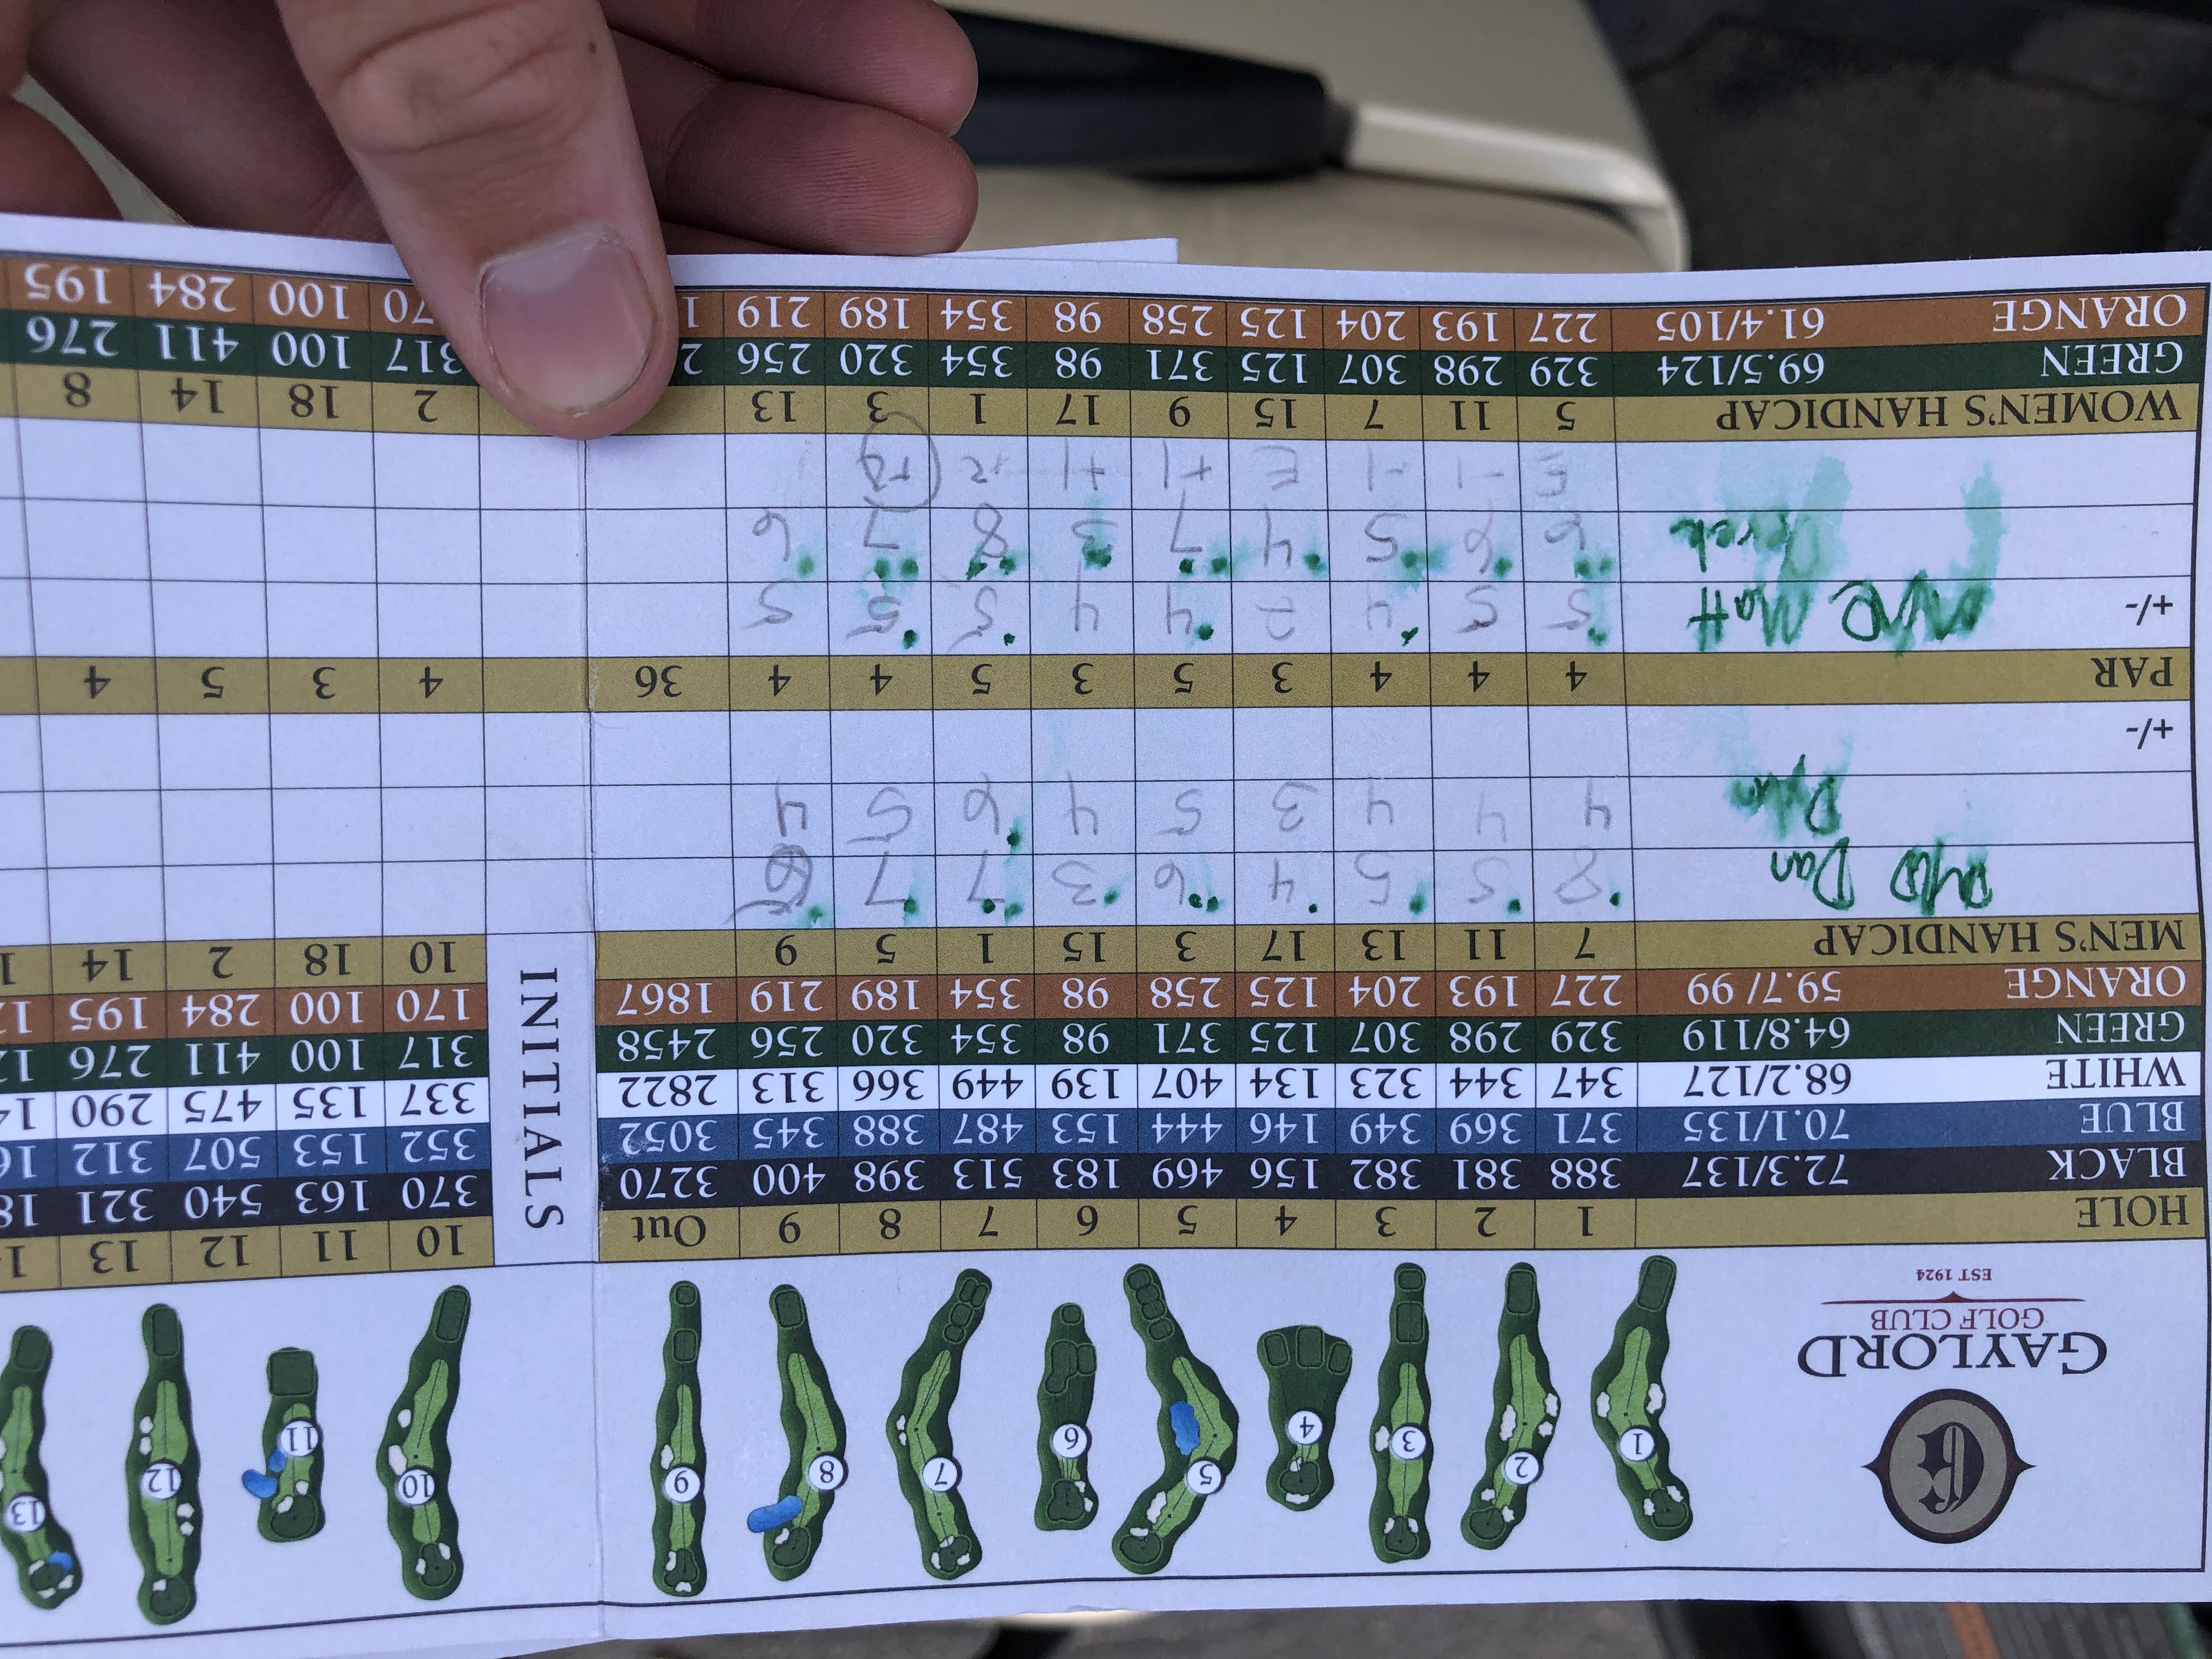 1 2 3 4 5 6 7 8 9 10 11 12 13
G
GAYLORD
GOLF CLUB
EST 1924
HOLE 1 2 3 4 5 6 7 8 9 Out INITIALS 10 11 12 13
BLACK 72.3/137 388 381 382 156 469 183 513 398 400 3270 370 163 540 321
BLUE 70.1/135 371 369 349 146 444 153 487 388 345 3052 352 153 507 312
WHITE 68.2/127 347 344 323 134 407 139 449 366 313 2822 337 135 475 290
GREEN 64.8/119 329 298 307 125 371 98 354 320 256 2458 317 100 411 276
ORANGE 59.7/ 99 227 193 204 125 258 98 354 189 219 1867 170 100 284 195
MEN'S HANDICAP 7 11 13 17 3 15 1 5 9 10 18 2 14
Dan 8 5 5 4 6 3 7 7
Dylan 4 4 4 3 5 4 6 5 4
+/-
PAR 4 4 4 3 5 3 5 4 4 36 4 3 5 4
+/- Matt 5 5 4 2 4 4 5 5 5
Derek 6 6 5 4 7 3 8 7 6
E -1 -1 E +1 +1 +2
WOMEN'S HANDICAP 5 11 7 15 9 17 1 3 13 2 18 14 8
GREEN 69.5/124 329 298 307 125 371 98 354 320 256 317 100 411 276
ORANGE 61.4/105 227 193 204 125 258 98 354 189 219 100 284 195